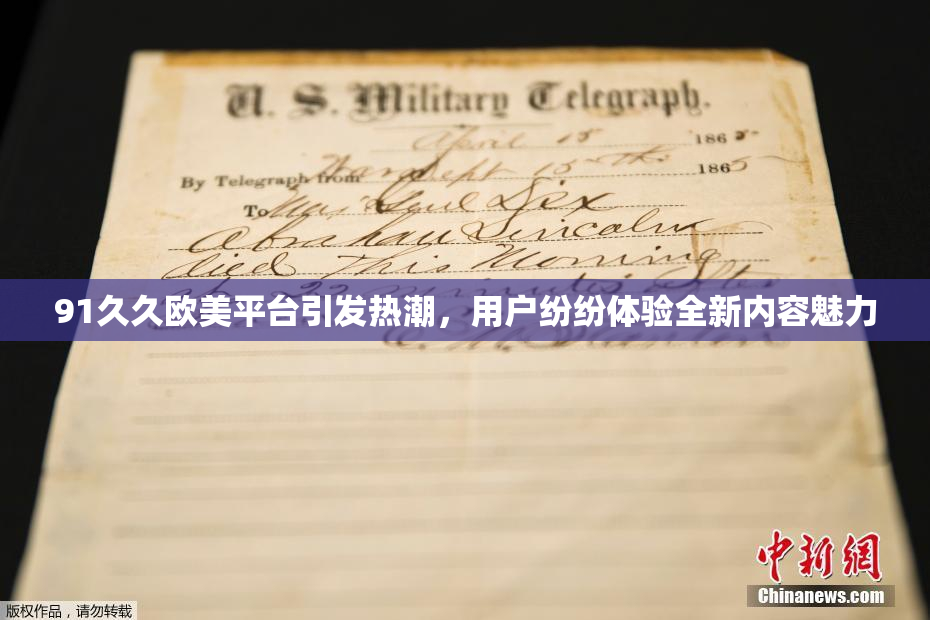 U. S. Military Telegraph.
April 15 1865
By Telegraph from War Dept 15th 1865
To Maj Genl Dix
Abraham Lincoln
died This Morning
22 minutes after
91久久欧美平台引发热潮，用户纷纷体验全新内容魅力
E. M. Stanton
中新网
Chinanews.com
版权作品，请勿转载